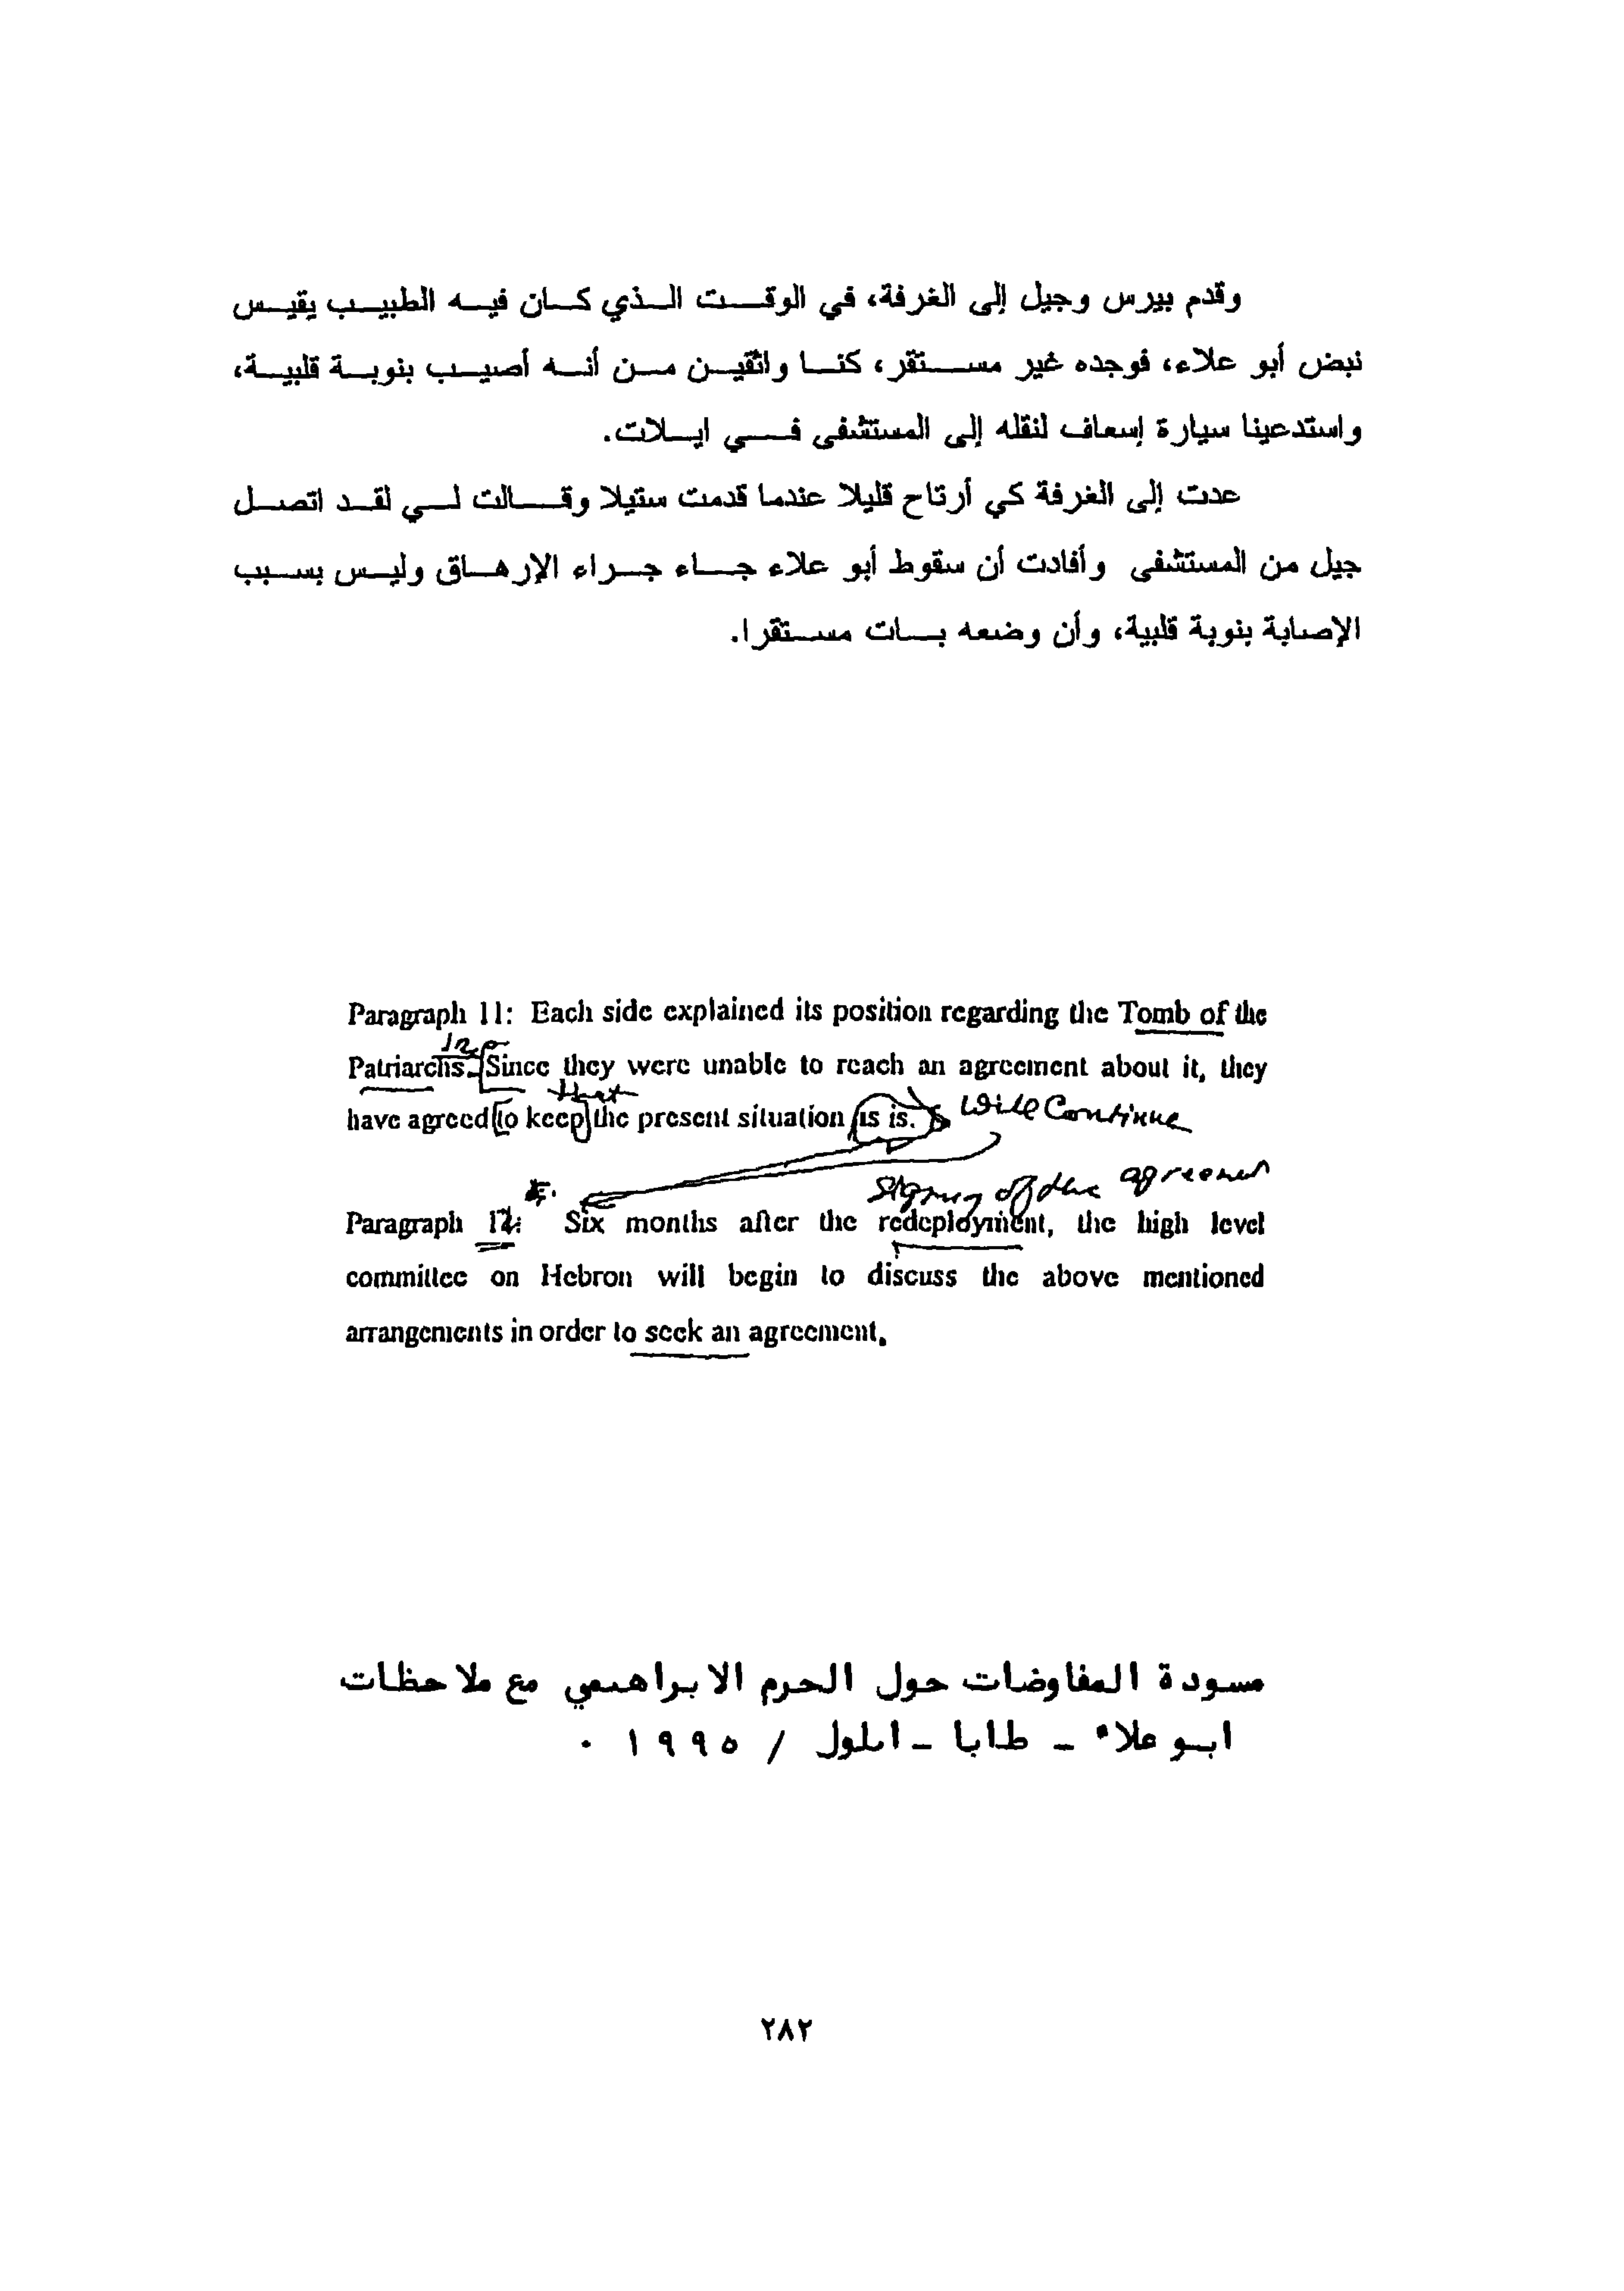 وقدم بيرس وجيل إلى الغرفة، في الوقت الذي كان فيه الطبيب يقيس
نبض أبو علاء، فوجده غير مستقر، كنا واثقين من أنه أصيب بنوبة قلبية،
واستدعينا سيارة إسعاف لنقله إلى المستشفى في ايلات.
عدت إلى الغرفة كي أرتاح قليلا عندما قدمت ستيلا وقالت لي لقد اتصل
جيل من المستشفى وأفادت أن سقوط أبو علاء جاء جراء الإرهاق وليس بسبب
الإصابة بنوبة قلبية، وأن وضعه بات مستقرا.
Paragraph 11: Each side explained its position regarding the Tomb of the
Patriarchs. Since they were unable to reach an agreement about it, they
that
have agreed to keep the present situation as is. will Continue
signing of the agreement
Paragraph 12: Six months after the redeployment, the high level
committee on Hebron will begin to discuss the above mentioned
arrangements in order to seek an agreement.
مسودة المفاوضات حول الحرم الابراهيمي مع ملاحظات
ابو علاء - طابا - ايلول / ١٩٩٥ .
٢٨٢